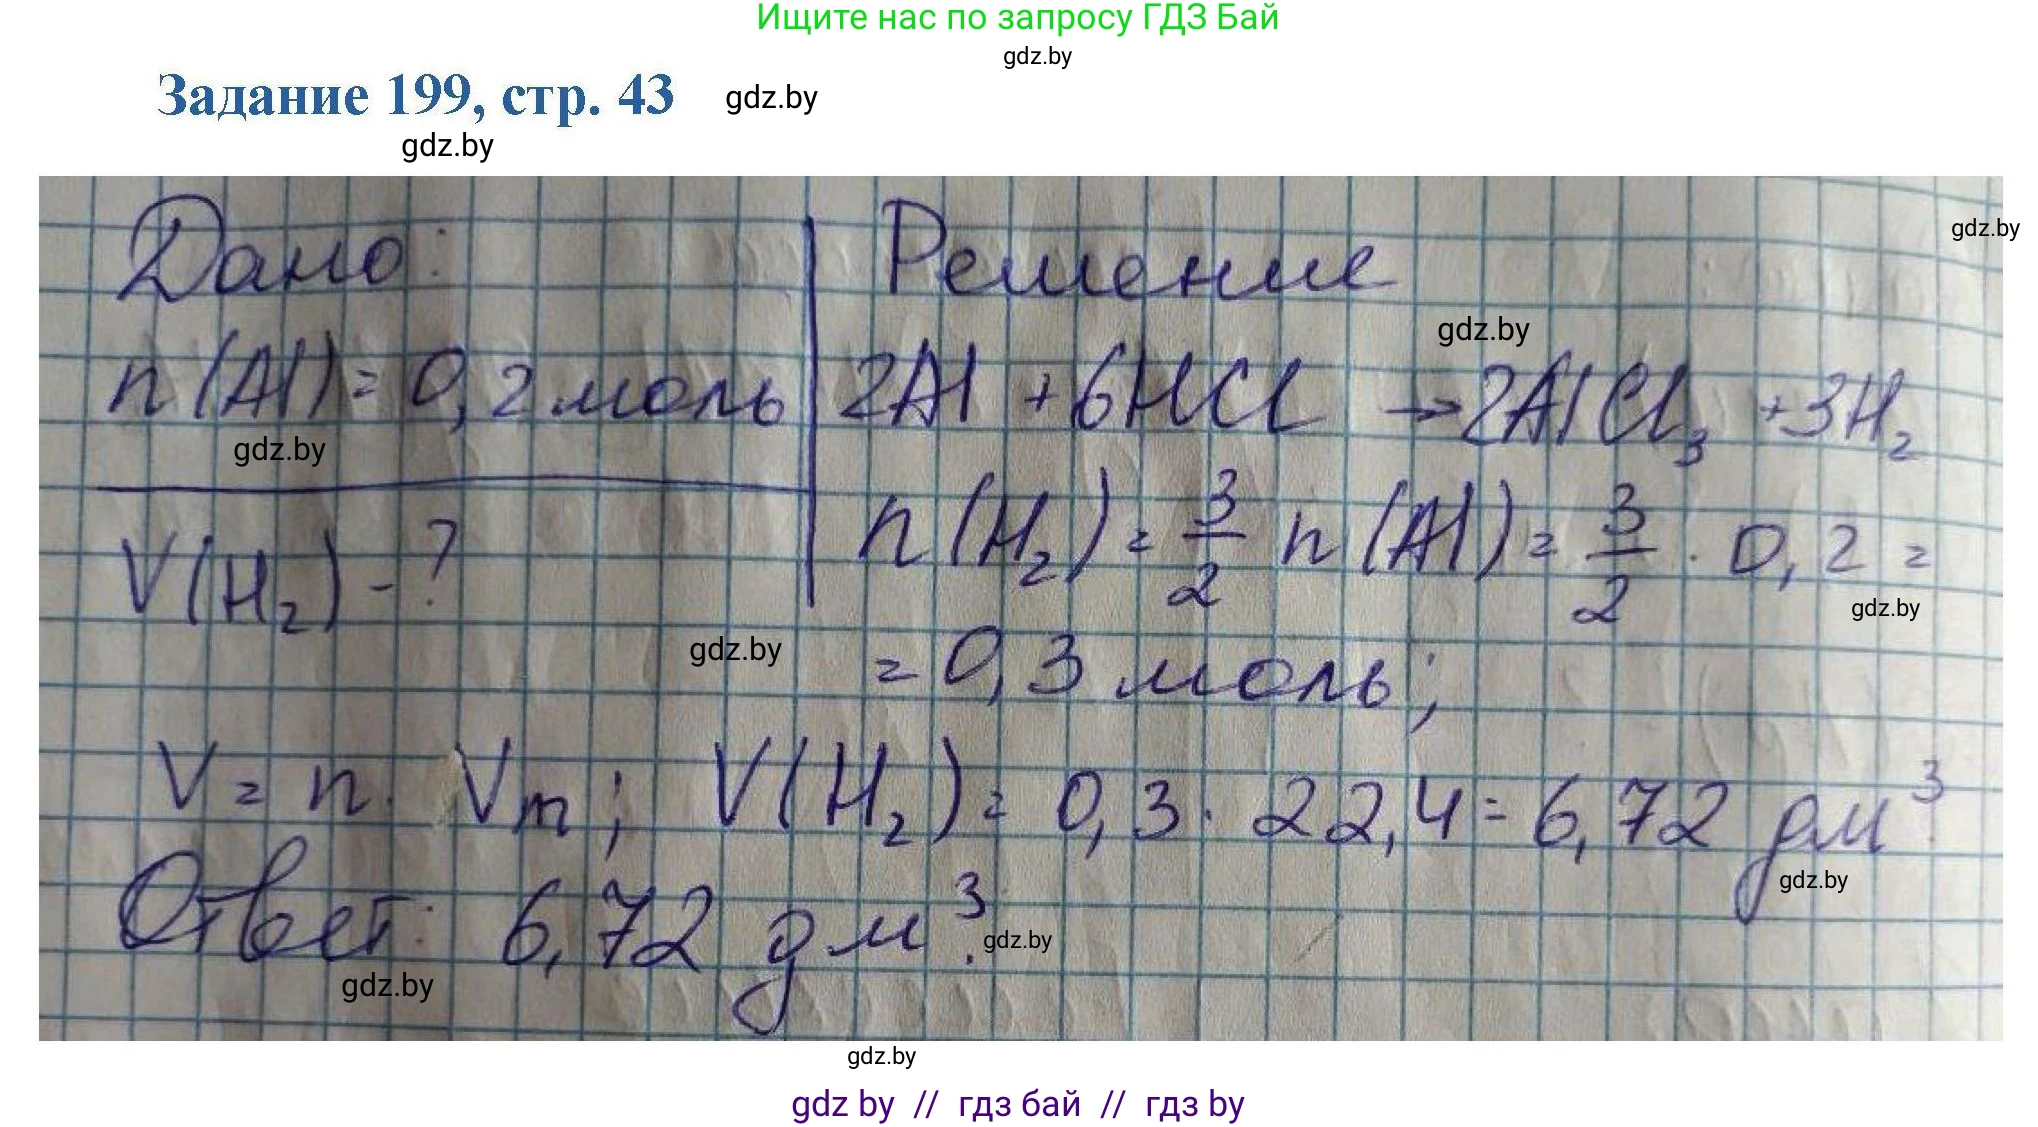 Ищите нас по запросу ГДЗ Бай
gdz.by
Задание 199, стр. 43 gdz.by
gdz.by
Дано: Решение
gdz.by
gdz.by
n(Al) = 0,2 моль 2Al + 6HCl → 2AlCl₃ + 3H₂
gdz.by
n(H₂) = 3/2 n(Al) = 3/2 · 0,2 =
V(H₂) - ?
gdz.by
gdz.by
= 0,3 моль;
V = n · Vm; V(H₂) = 0,3 · 22,4 = 6,72 дм³
gdz.by
Ответ: 6,72 дм³.
gdz.by
gdz.by
gdz.by
gdz by // гдз бай // гдз by